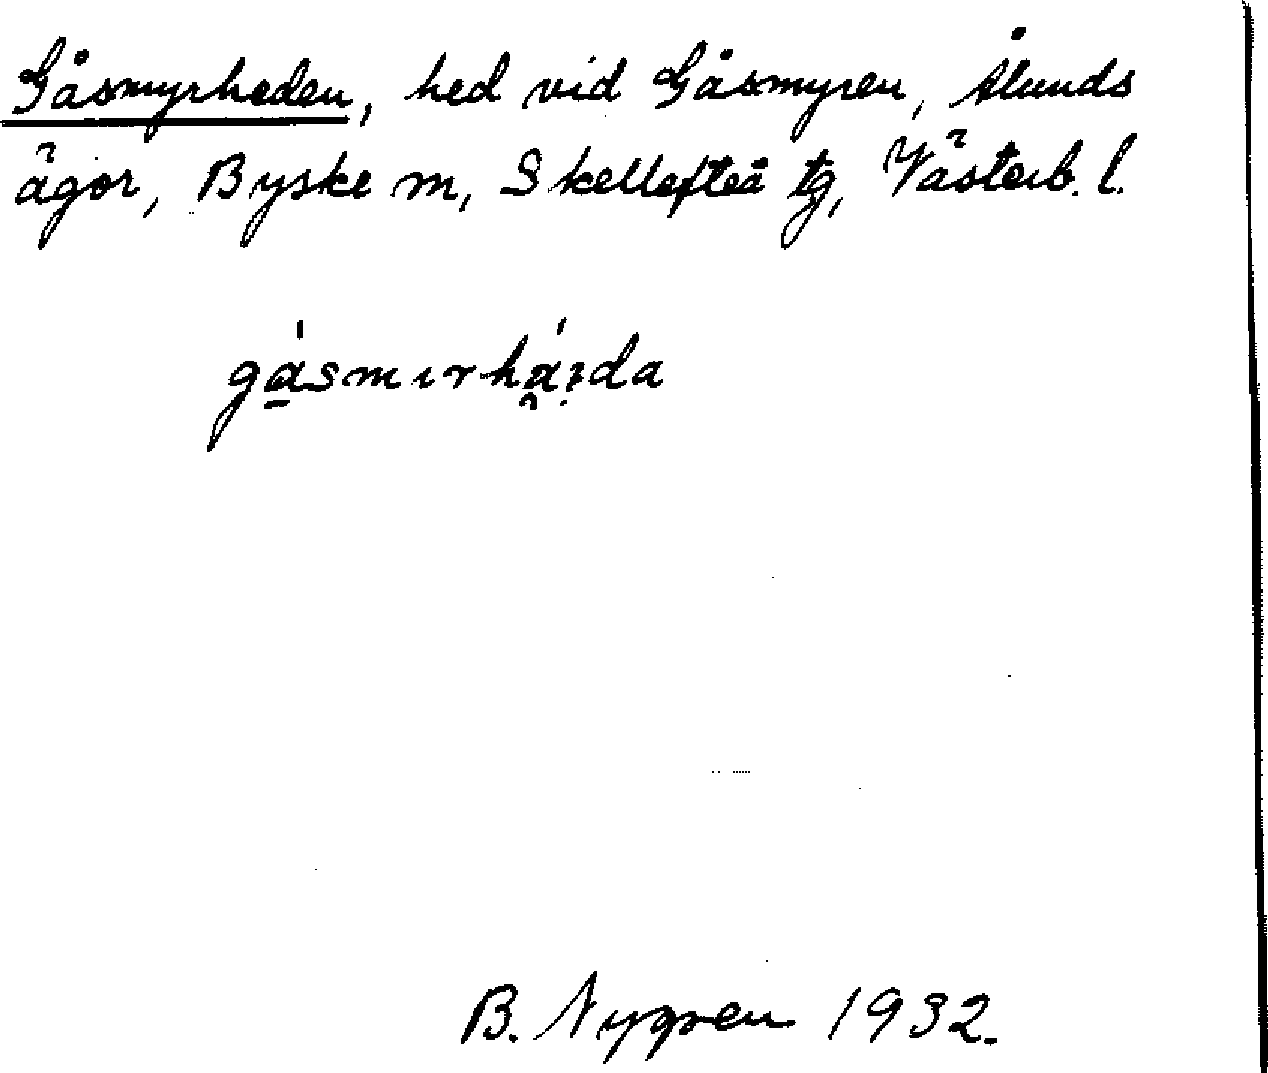 Gåsmyrheden, hed vid Gåsmyren, Ålunds
ägor, Byske m, Skellefteå tg, Västerb. l.
gásmırhá̯ıda
B. Nygren 1932.